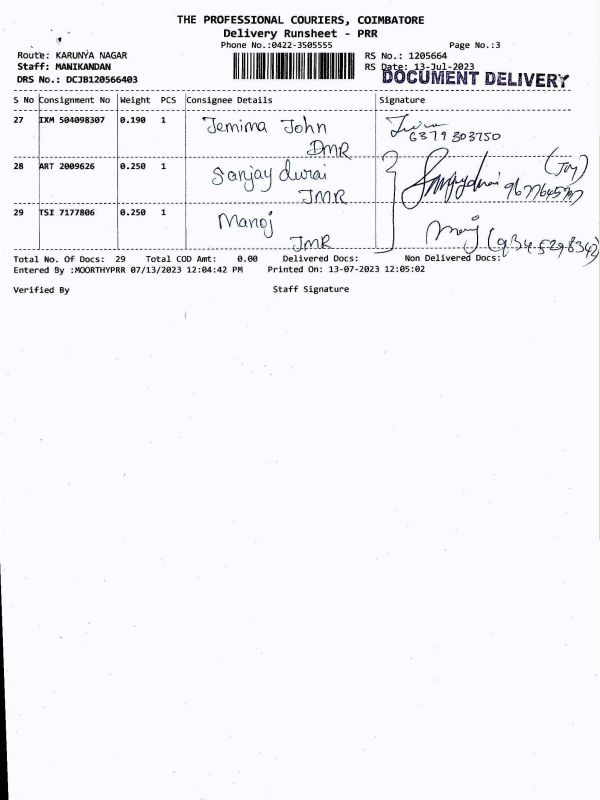 THE PROFESSIONAL COURIERS, COIMBATORE
Delivery Runsheet - PRR
Phone No.:0422-3505555 Page No.:3
Route: KARUNYA NAGAR RS No.: 1205664
Staff: MANIKANDAN RS Date: 13-Jul-2023
DRS No.: DCJB120566403 DOCUMENT DELIVERY
S No Consignment No Weight PCS Consignee Details Signature
27 IXM 504098307 0.190 1 Jemima John
6379303750
DMR
28 ART 2009626 0.250 1 Sanjay durai (Joy)
JMR
29 TSI 7177806 0.250 1 Manoj
JMR
Total No. Of Docs: 29 Total COD Amt: 0.00 Delivered Docs: Non Delivered Docs:
Entered By :MOORTHYPRR 07/13/2023 12:04:42 PM Printed On: 13-07-2023 12:05:02
Verified By Staff Signature